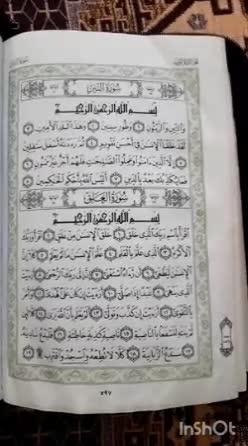 سُورَةُ التِّينِ
بِسْمِ اللَّهِ الرَّحْمَٰنِ الرَّحِيمِ
وَالتِّينِ وَالزَّيْتُونِ ١ وَطُورِ سِينِينَ ٢ وَهَٰذَا الْبَلَدِ الْأَمِينِ ٣
لَقَدْ خَلَقْنَا الْإِنسَانَ فِي أَحْسَنِ تَقْوِيمٍ ٤ ثُمَّ رَدَدْنَاهُ أَسْفَلَ سَافِلِينَ
٥ إِلَّا الَّذِينَ آمَنُوا وَعَمِلُوا الصَّالِحَاتِ فَلَهُمْ أَجْرٌ غَيْرُ مَمْنُونٍ ٦
فَمَا يُكَذِّبُكَ بَعْدُ بِالدِّينِ ٧ أَلَيْسَ اللَّهُ بِأَحْكَمِ الْحَاكِمِينَ ٨
سُورَةُ الْعَلَقِ
بِسْمِ اللَّهِ الرَّحْمَٰنِ الرَّحِيمِ
اقْرَأْ بِاسْمِ رَبِّكَ الَّذِي خَلَقَ ١ خَلَقَ الْإِنسَانَ مِنْ عَلَقٍ ٢ اقْرَأْ وَرَبُّكَ
الْأَكْرَمُ ٣ الَّذِي عَلَّمَ بِالْقَلَمِ ٤ عَلَّمَ الْإِنسَانَ مَا لَمْ يَعْلَمْ ٥ كَلَّا إِنَّ
الْإِنسَانَ لَيَطْغَىٰ ٦ أَن رَّآهُ اسْتَغْنَىٰ ٧ إِنَّ إِلَىٰ رَبِّكَ الرُّجْعَىٰ ٨ أَرَأَيْتَ
الَّذِي يَنْهَىٰ ٩ عَبْدًا إِذَا صَلَّىٰ ١٠ أَرَأَيْتَ إِن كَانَ عَلَى الْهُدَىٰ ١١ أَوْ أَمَرَ
بِالتَّقْوَىٰ ١٢ أَرَأَيْتَ إِن كَذَّبَ وَتَوَلَّىٰ ١٣ أَلَمْ يَعْلَم بِأَنَّ اللَّهَ يَرَىٰ ١٤ كَلَّا لَئِن لَّمْ
يَنتَهِ لَنَسْفَعًا بِالنَّاصِيَةِ ١٥ نَاصِيَةٍ كَاذِبَةٍ خَاطِئَةٍ ١٦ فَلْيَدْعُ نَادِيَهُ
١٧ سَنَدْعُ الزَّبَانِيَةَ ١٨ كَلَّا لَا تُطِعْهُ وَاسْجُدْ وَاقْتَرِب ١٩
٥٩٧
InShOt